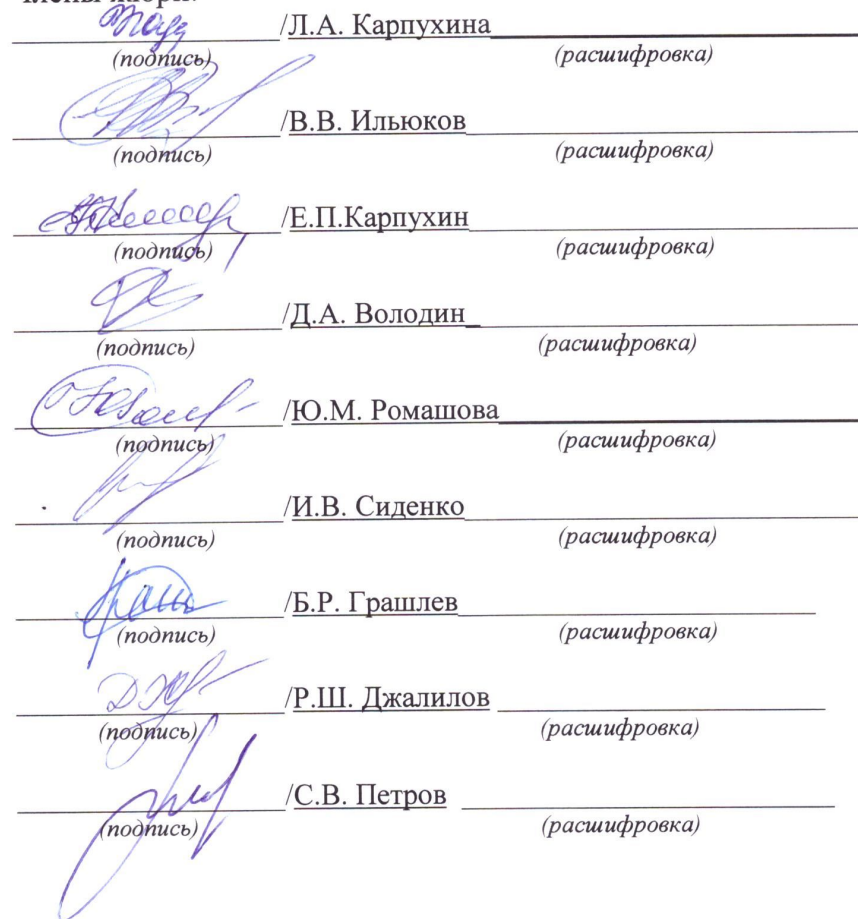 Члены жюри:
/Л.А. Карпухина
(подпись) (расшифровка)
/В.В. Ильюков
(подпись) (расшифровка)
/Е.П.Карпухин
(подпись) (расшифровка)
/Д.А. Володин
(подпись) (расшифровка)
/Ю.М. Ромашова
(подпись) (расшифровка)
/И.В. Сиденко
(подпись) (расшифровка)
/Б.Р. Грашлев
(подпись) (расшифровка)
/Р.Ш. Джалилов
(подпись) (расшифровка)
/С.В. Петров
(подпись) (расшифровка)